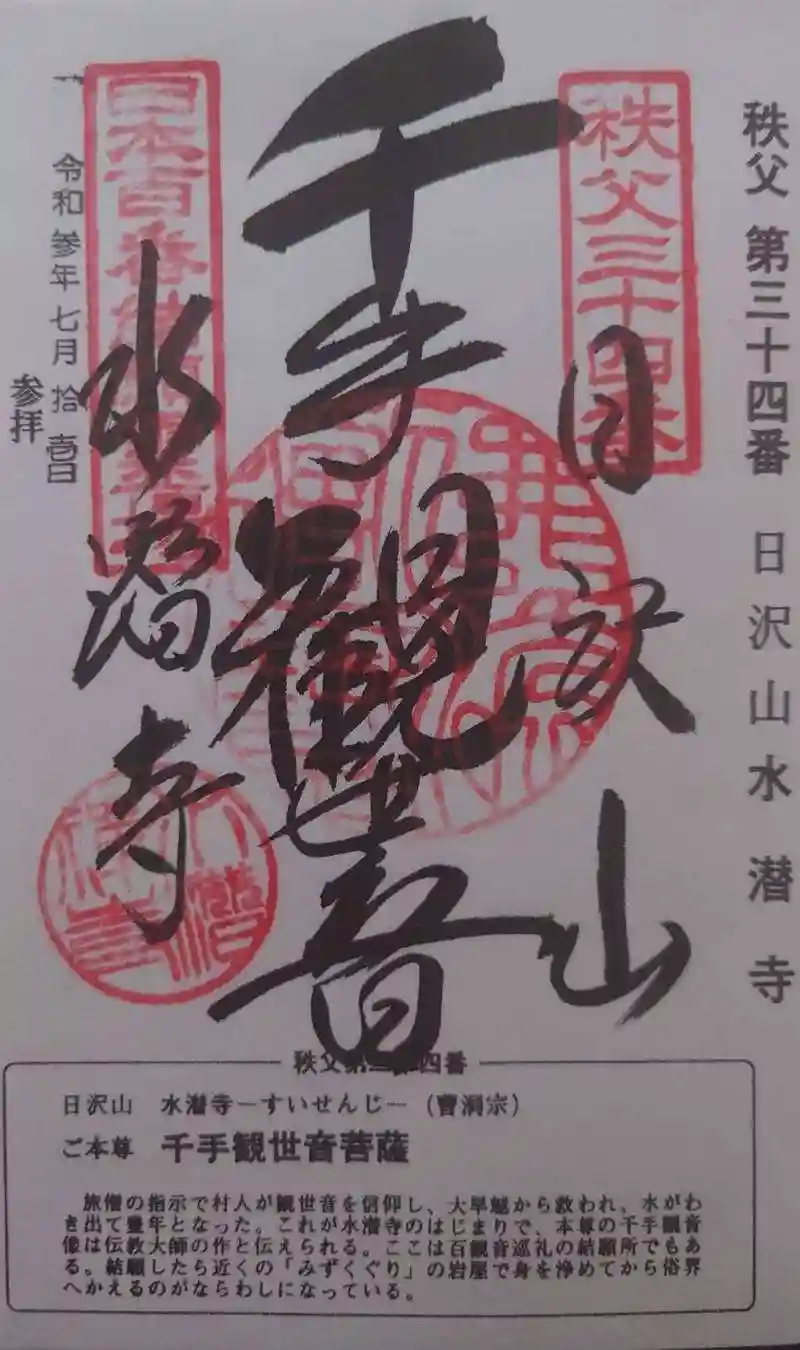 秩父 第三十四番 日沢山水潜寺
秩父三十四番
日沢山
千手観世音
水潜寺
日本百番結願
令和参年七月拾壱日
参拝
秩父第三十四番
日沢山 水潜寺ーすいせんじー (曹洞宗)
ご本尊 千手観世音菩薩
旅僧の指示で村人が観世音を信仰し、大旱魃から救われ、水がわ
き出て豊年となった。これが水潜寺のはじまりで、本尊の千手観音
像は伝教大師の作と伝えられる。ここは百観音巡礼の結願所でもあ
る。結願したら近くの「みずくぐり」の岩屋で身を浄めてから俗界
へかえるのがならわしになっている。